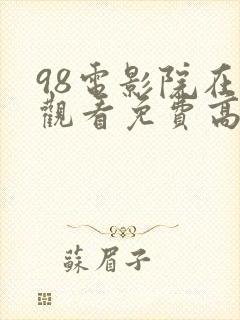 98電影院在
觀看免費高
蘇眉子